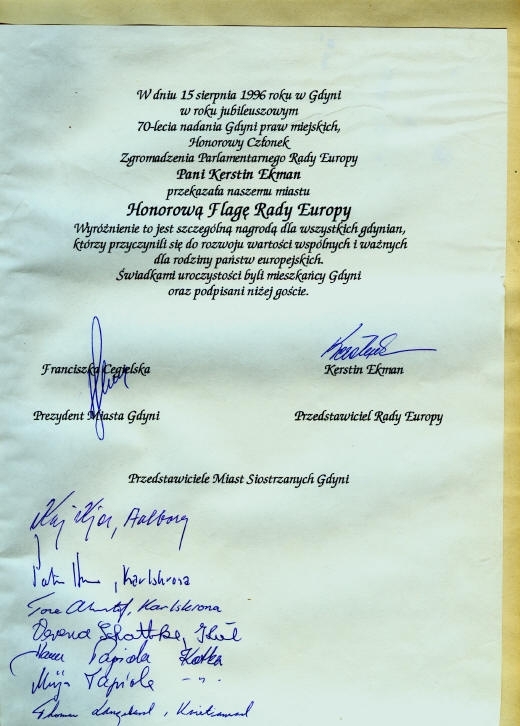 W dniu 15 sierpnia 1996 roku w Gdyni
w roku jubileuszowym
70-lecia nadania Gdyni praw miejskich,
Honorowy Członek
Zgromadzenia Parlamentarnego Rady Europy
Pani Kerstin Ekman
przekazała naszemu miastu
Honorową Flagę Rady Europy
Wyróżnienie to jest szczególną nagrodą dla wszystkich gdynian,
którzy przyczynili się do rozwoju wartości wspólnych i ważnych
dla rodziny państw europejskich.
Świadkami uroczystości byli mieszkańcy Gdyni
oraz podpisani niżej goście.
Franciszka Cegielska
Kerstin Ekman
Prezydent Miasta Gdyni
Przedstawiciel Rady Europy
Przedstawiciele Miast Siostrzanych Gdyni
Kaj Kjær, Aalborg
, Karlskrona
Tore, Karlskrona
Kiel
Tapiola Kotka
Tapiola - " -
Thomas